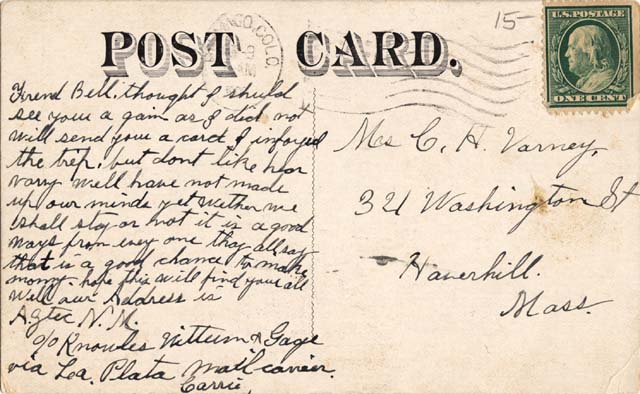 POST CARD.
15-
U.S. POSTAGE
ONE CENT
NGO, COLO.
Frend Bell, thought I should
see your a gain as I did not
will send your a card I injoyed
the trip, but dont like hear
varry well, have not made
up our minds yet wether we
shall stay or not it is a good
ways from eny one thay all say
that is a good chance to make
money. hope this will find your all
well our address is
Aztec N. M.
c/o Knowles Vittum & Gage
via La. Plata Mail carrier.
Carrie,
Mrs C. H. Varney,
321 Washington St
Haverhill.
Mass.